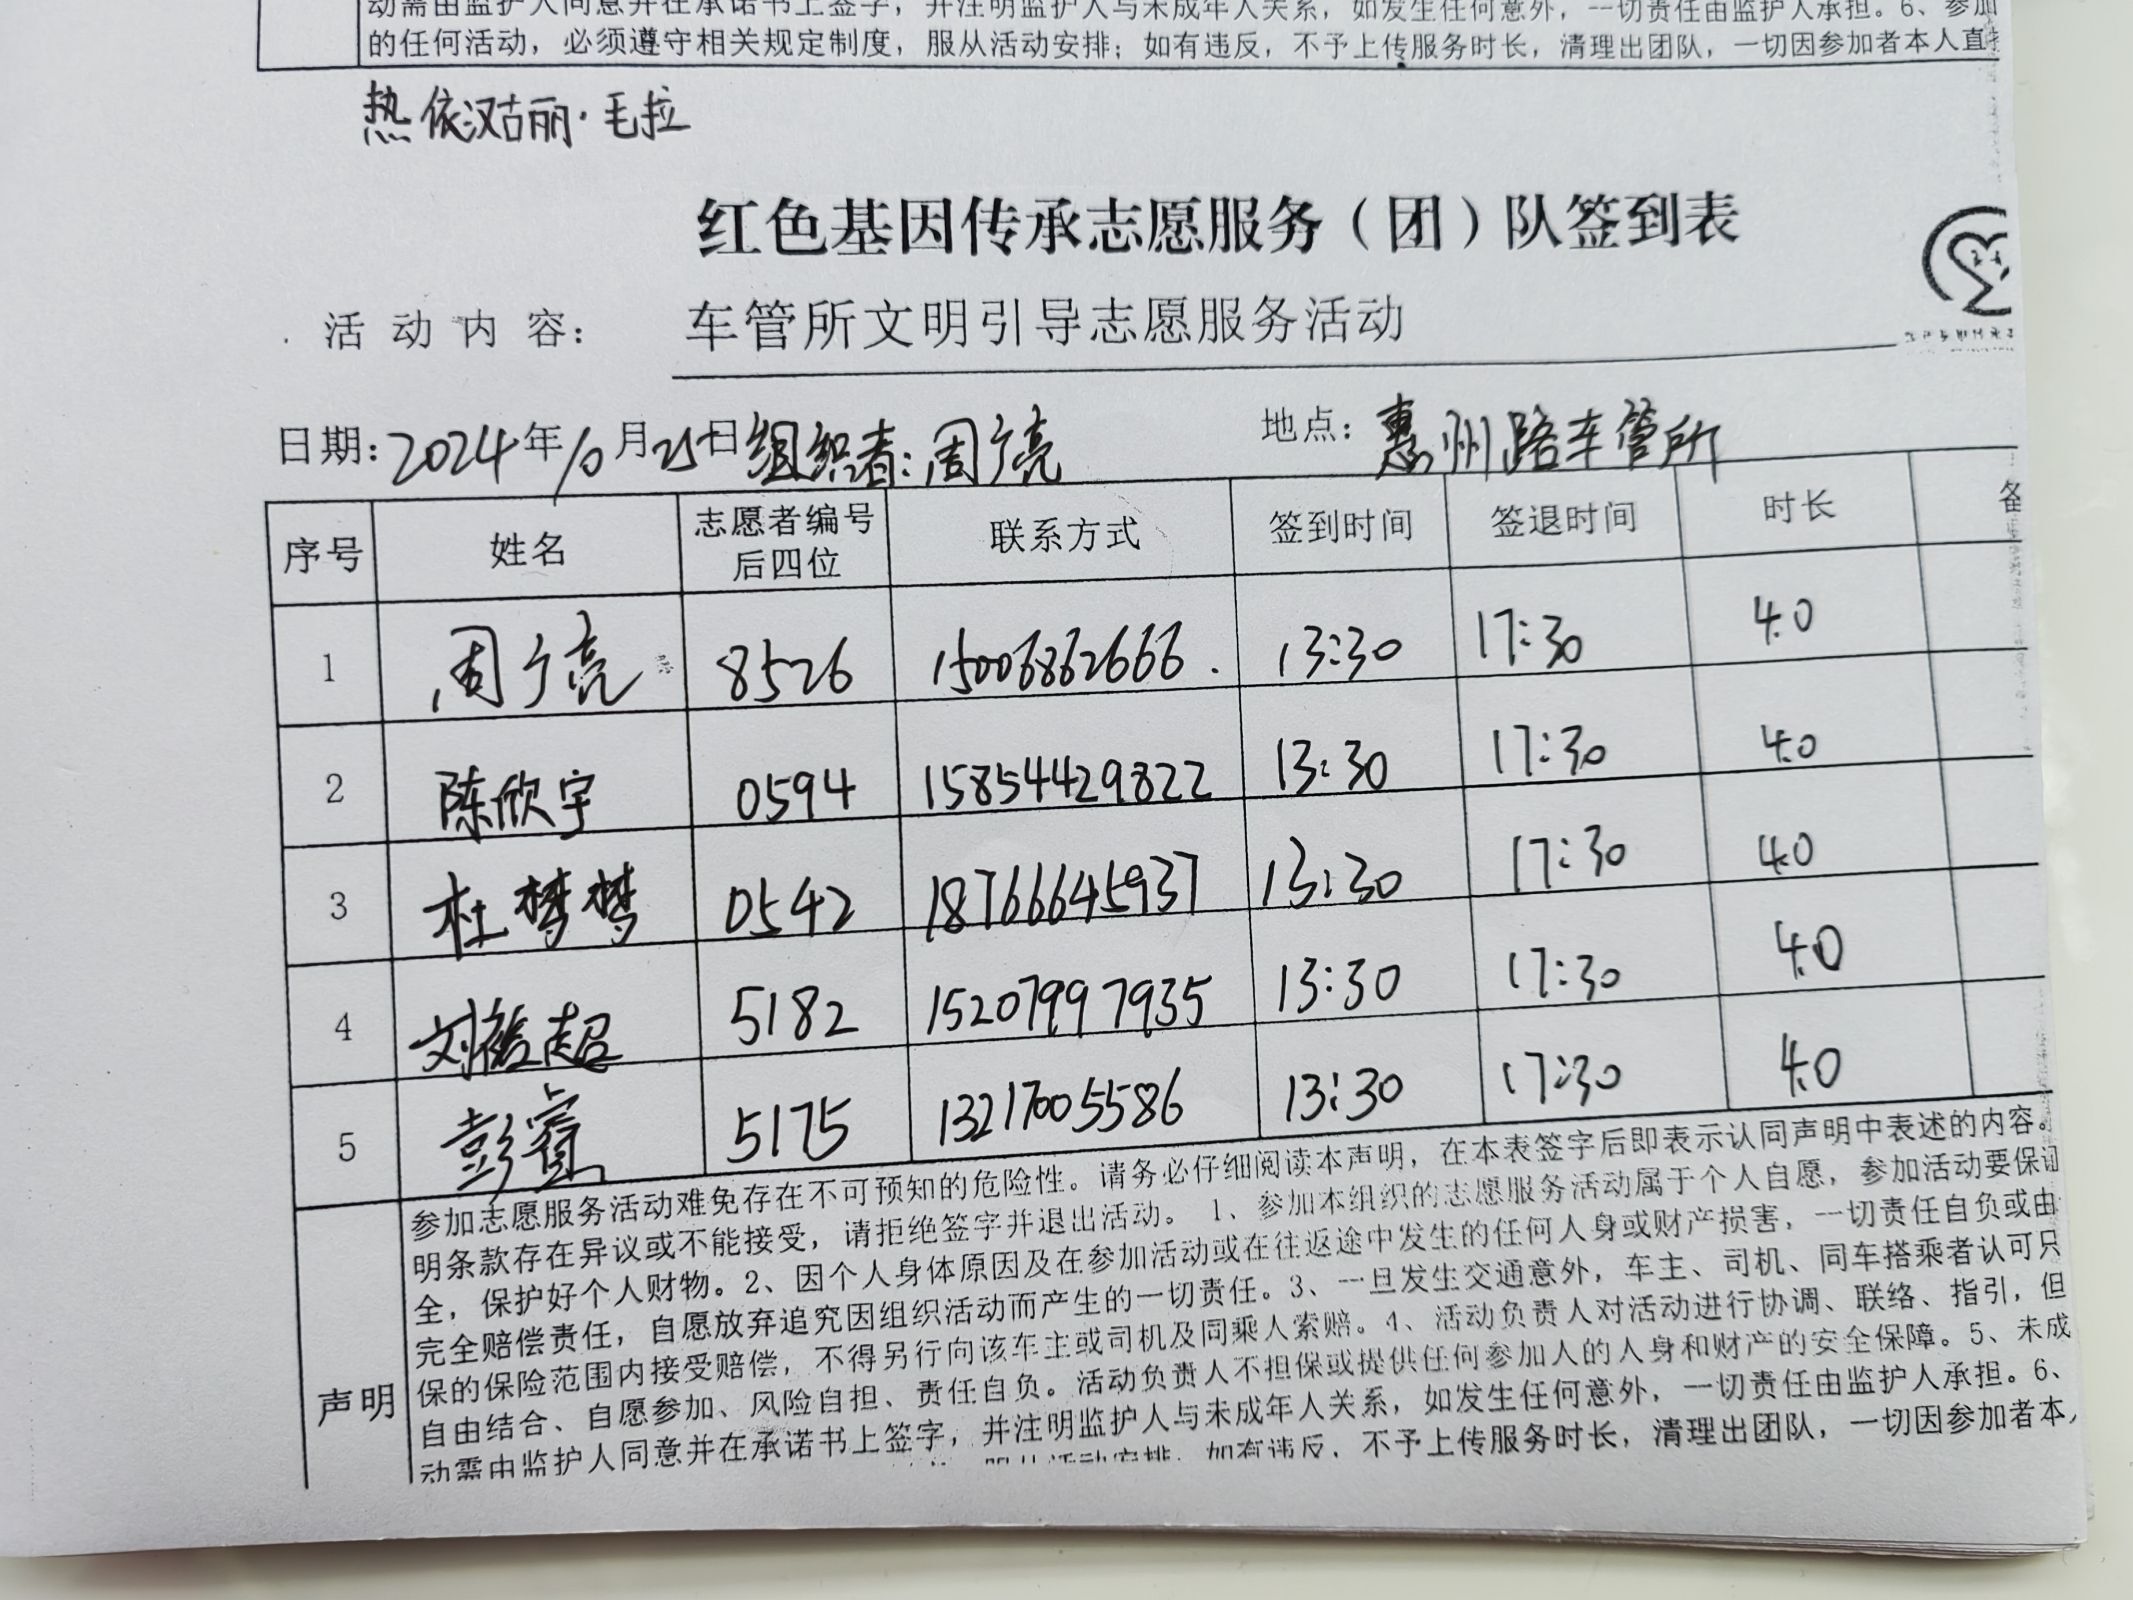 动需由监护人同意并在承诺书上签字，并注明监护人与未成年人关系，如发生任何意外，一切责任由监护人承担。6、参加
的任何活动，必须遵守相关规定制度，服从活动安排；如有违反，不予上传服务时长，清理出团队，一切因参加者本人直接
热依汉古丽·毛拉
红色基因传承志愿服务（团）队签到表
活动内容： 车管所文明引导志愿服务活动
日期：2024年10月25日 组织者：周广亮 地点：惠州路车管所
序号 姓名 志愿者编号后四位 联系方式 签到时间 签退时间 时长 备
1 周广亮 8526 15006862666. 13:30 17:30 4.0
2 陈欣宇 0594 15854429822 13:30 17:30 4.0
3 杜梦梦 0542 18766645937 13:30 17:30 4.0
4 刘超 5182 15207997935 13:30 17:30 4.0
5 彭睿 5175 13217005586 13:30 17:30 4.0
声明
参加志愿服务活动难免存在不可预知的危险性。请务必仔细阅读本声明，在本表签字后即表示认同声明中表述的内容。
明条款存在异议或不能接受，请拒绝签字并退出活动。 1、参加本组织的志愿服务活动属于个人自愿，参加活动要保证
全，保护好个人财物。2、因个人身体原因及在参加活动或在往返途中发生的任何人身或财产损害，一切责任自负或由
完全赔偿责任，自愿放弃追究因组织活动而产生的一切责任。3、一旦发生交通意外，车主、司机、同车搭乘者认可只
保的保险范围内接受赔偿，不得另行向该车主或司机及同乘人索赔。4、活动负责人对活动进行协调、联络、指引，但
自由结合、自愿参加、风险自担、责任自负。活动负责人不担保或提供任何参加人的人身和财产的安全保障。5、未成
动需由监护人同意并在承诺书上签字，并注明监护人与未成年人关系，如发生任何意外，一切责任由监护人承担。6、
服从活动安排；如有违反，不予上传服务时长，清理出团队，一切因参加者本人